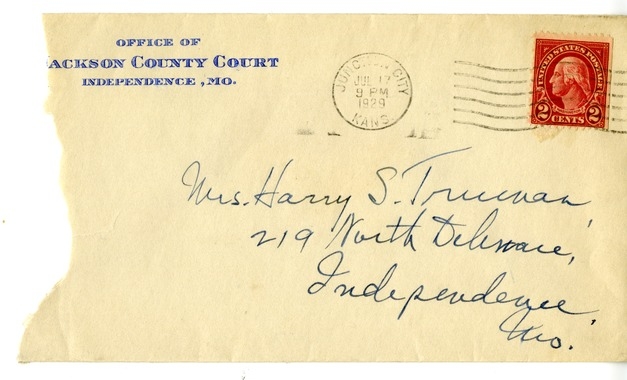 OFFICE OF
ACKSON COUNTY COURT
INDEPENDENCE, MO.
JUNCTION CITY
JUL 17
9 PM
1929
KANS.
UNITED STATES POSTAGE
2 CENTS 2
Mrs. Harry S. Truman,
219 North Delaware,
Independence,
Mo.